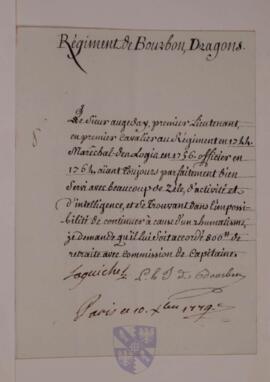 Régiment de Bourbon, Dragons.
Le Sieur augeday, premier Lieutenant,
en premier Cavalier au Régiment en 1744
Maréchal-des-Logis en 1756. officier en
1764. aïant toujours parfaitement bien
Servi avec beaucoup de Zèle, d'activité et
d'intelligence, et se Trouvant dans l'impos
bilité de continuer à cause d'un rhumatisme,
je demande qu'il lui soit accordé 800ᵗᵗ de
retraite avec Commission de Capitaine.
Laguiche L. h. J. de Bourbon
Paris ce 10. Xbre 1779.